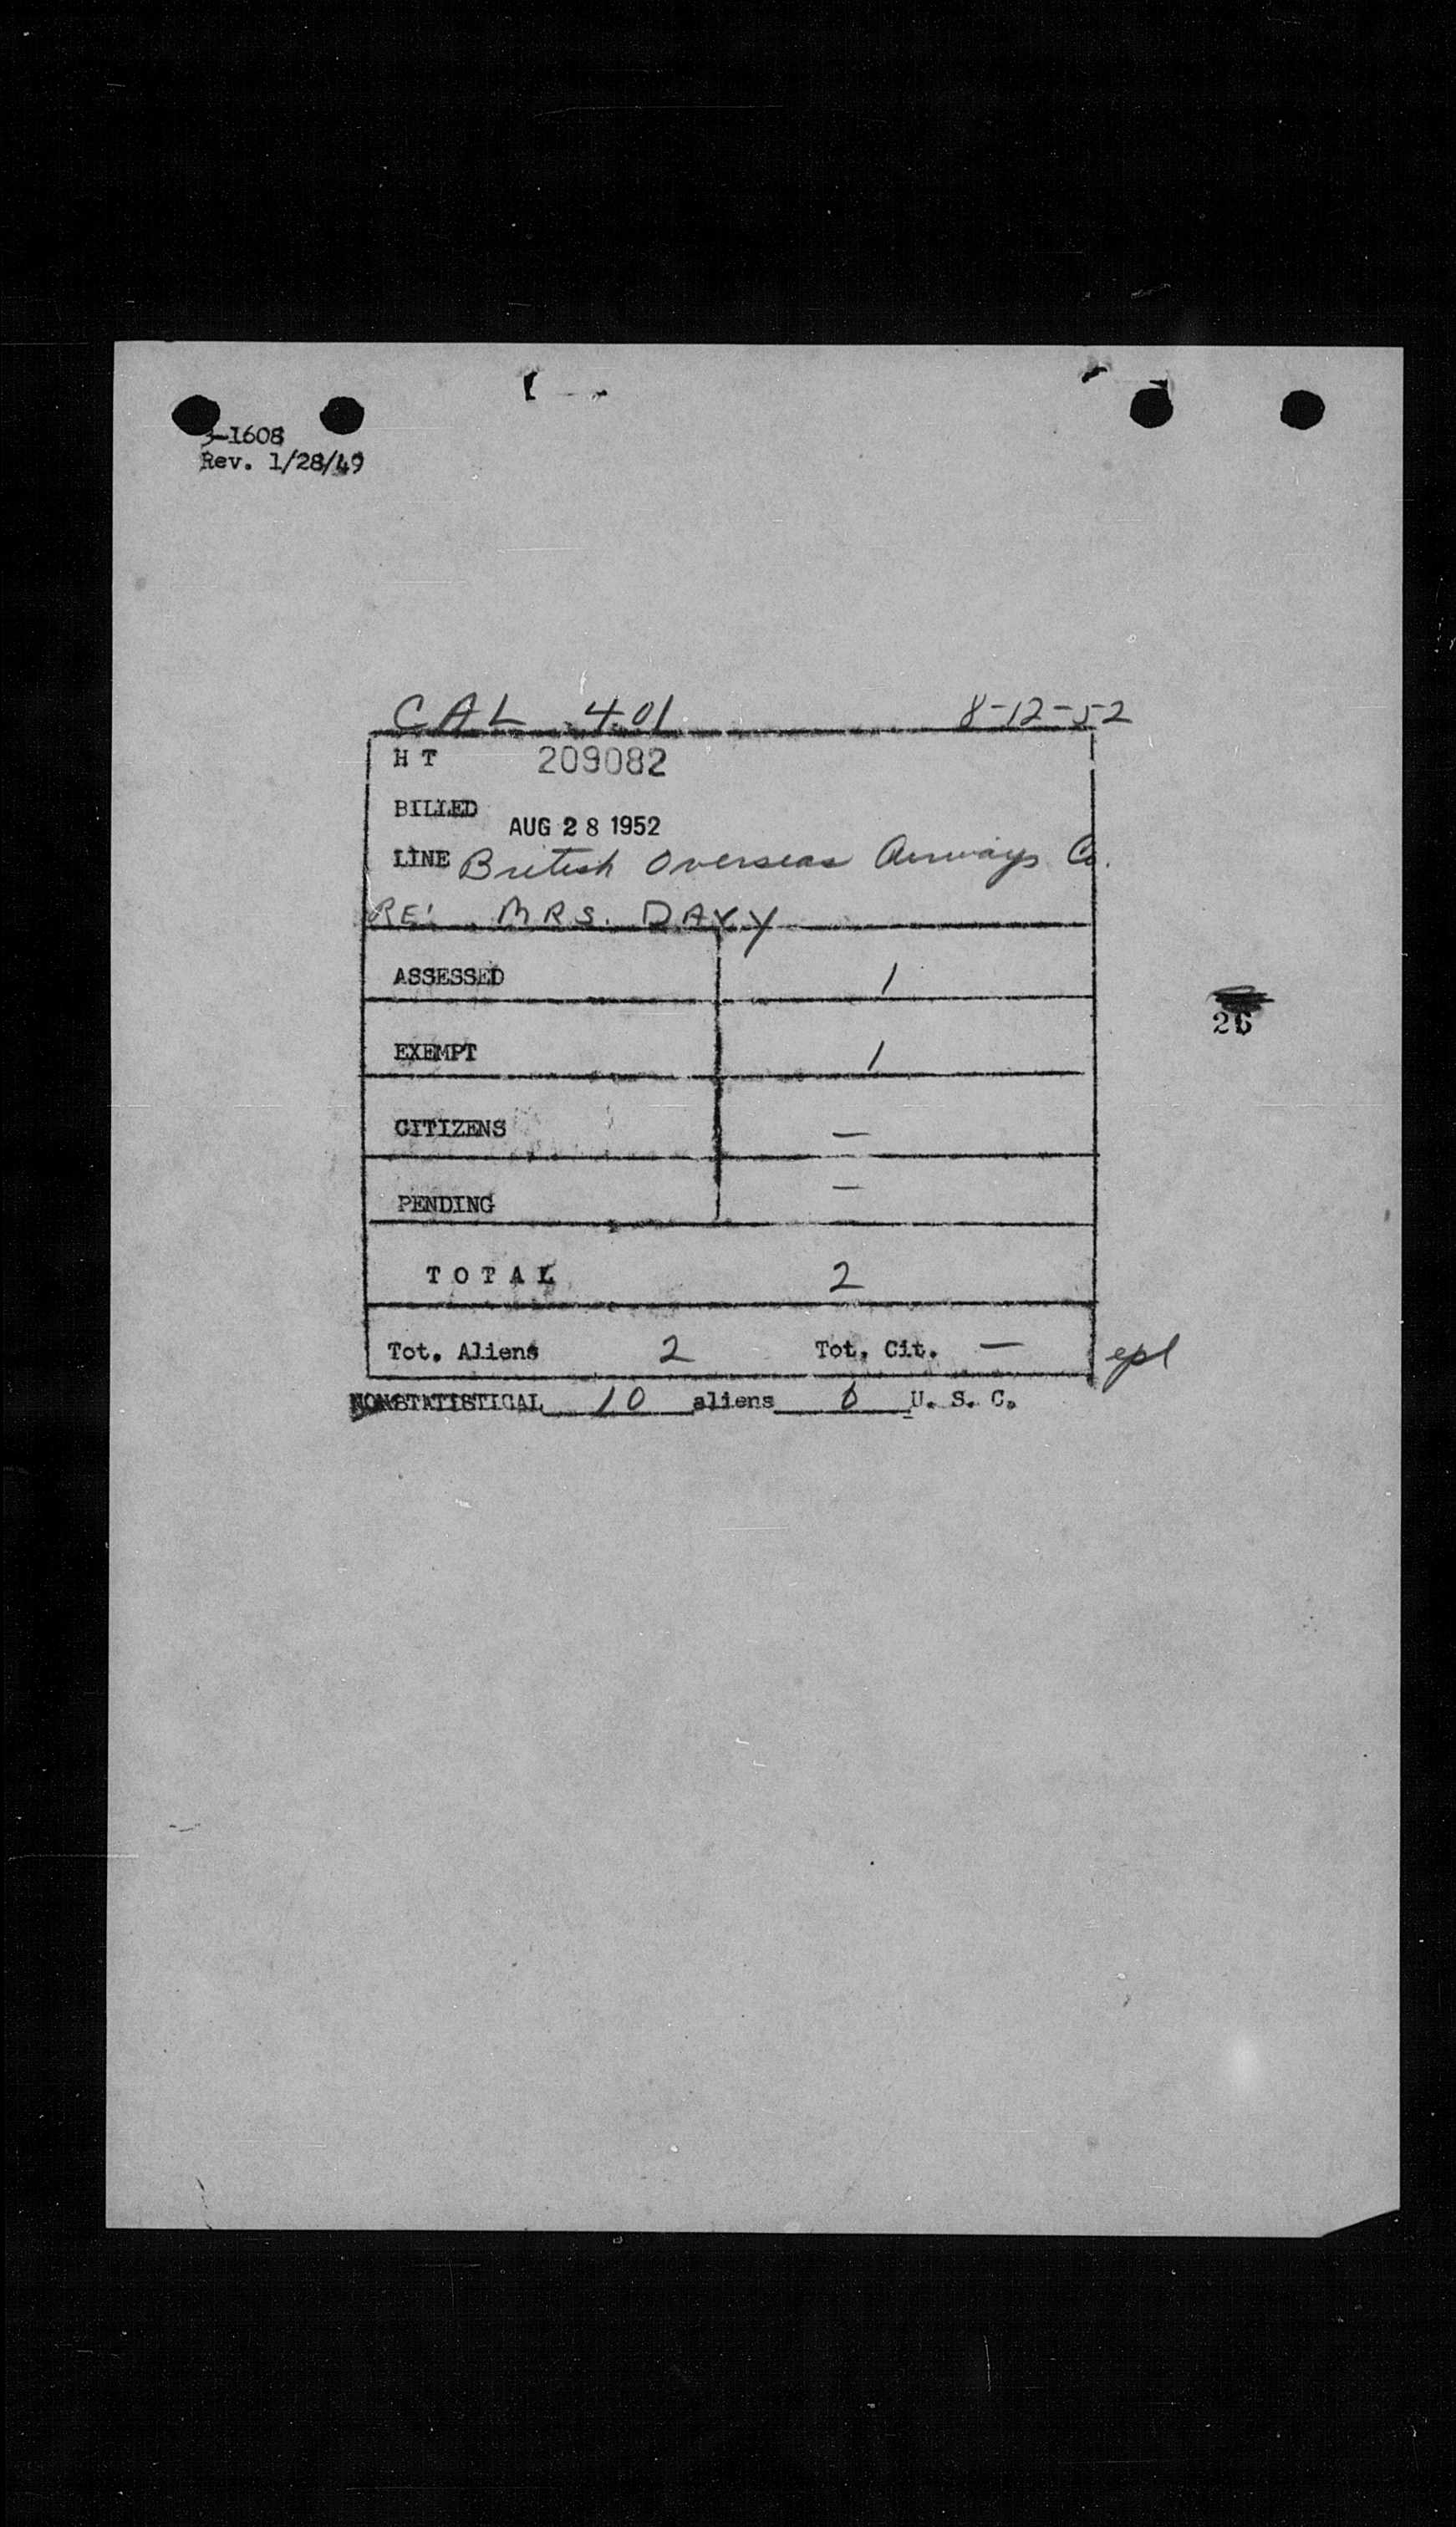 3-1608
Rev. 1/28/49
CAL 401 8-12-52
H T 209082
BILLED AUG 28 1952
LINE British Overseas Airways Co.
RE: MRS. DAVY
ASSESSED 1
EXEMPT 1
26
CITIZENS —
PENDING —
T O T A L 2
Tot. Aliens 2 Tot. Cit. — epl
NONSTATISTICAL 10 aliens 6 U. S. C.